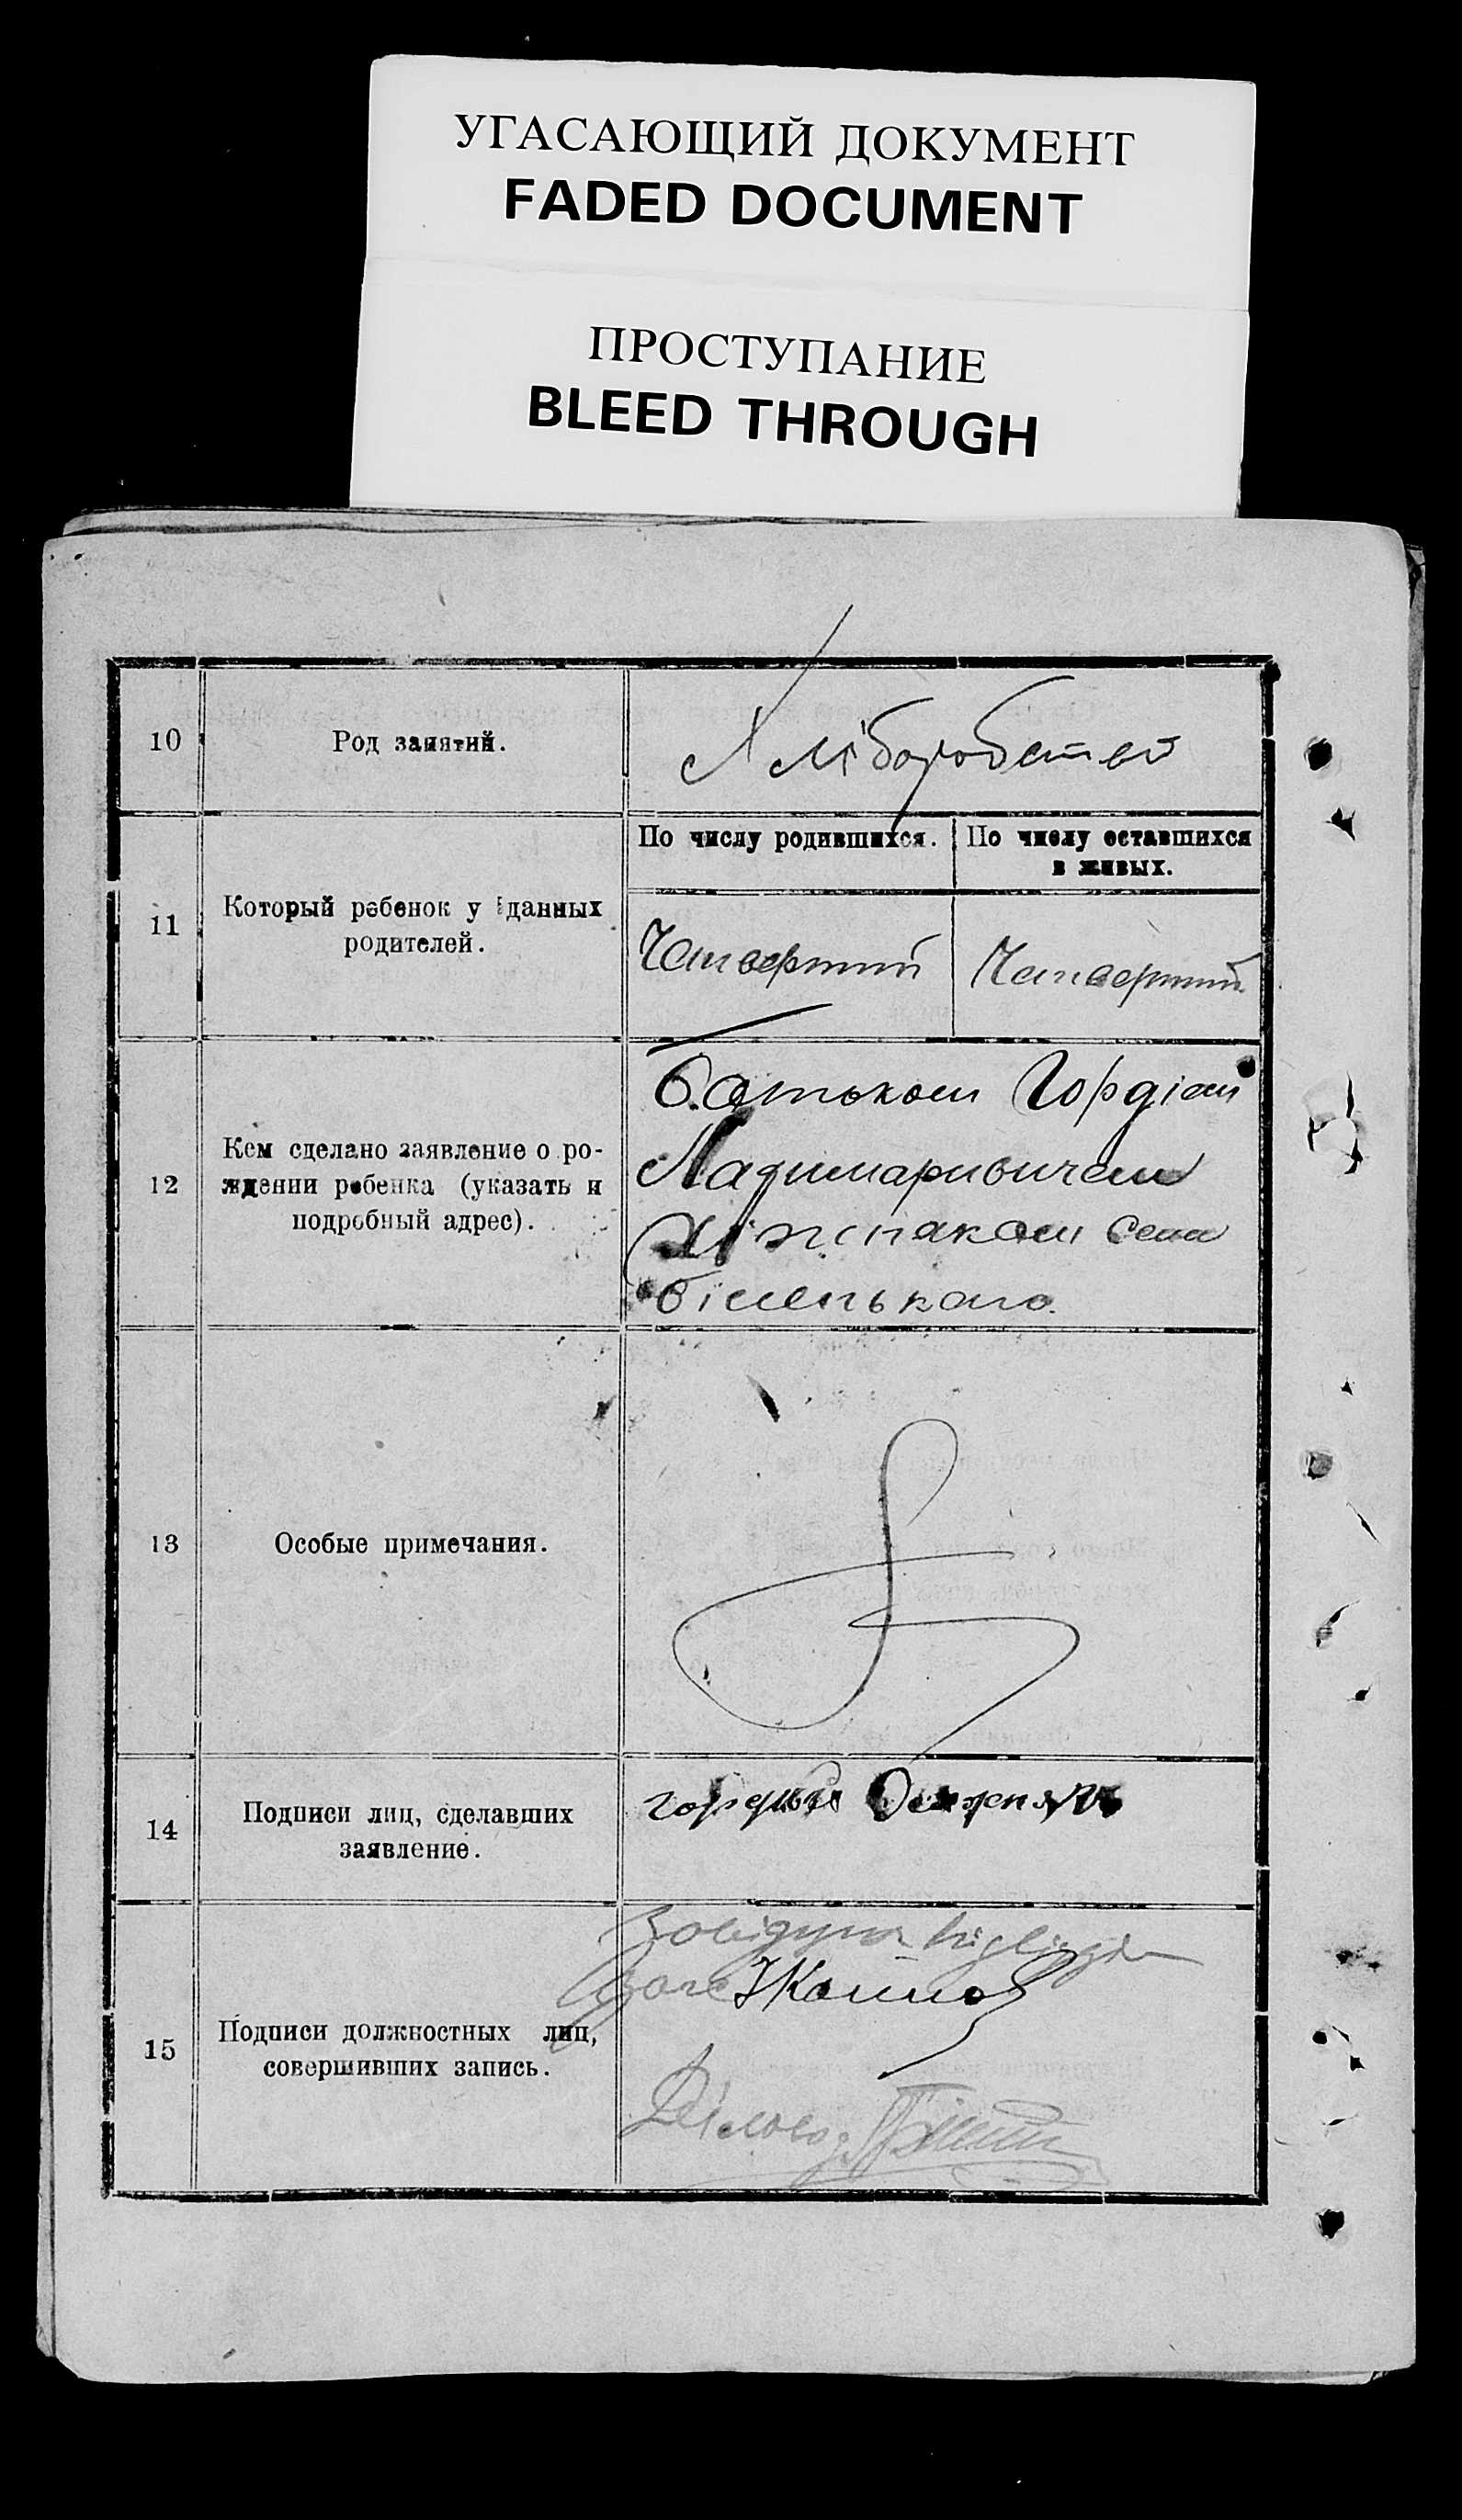 УГАСАЮЩИЙ ДОКУМЕНТ
FADED DOCUMENT
ПРОСТУПАНИЕ
BLEED THROUGH
10
Род занятий.
11
Который ребенок у данных
родителей.
По числу родившихся.
По числу оставшихся
в живых.
Четвертий
Четвертий
12
Кем сделано заявление о ро-
ждении ребенка (указать и
подробный адрес).
Батьком Гордієм
села
Біленького
13
Особые примечания.
14
Подписи лиц, сделавших
заявление.
15
Подписи должностных лиц,
совершивших запись.
Діловод